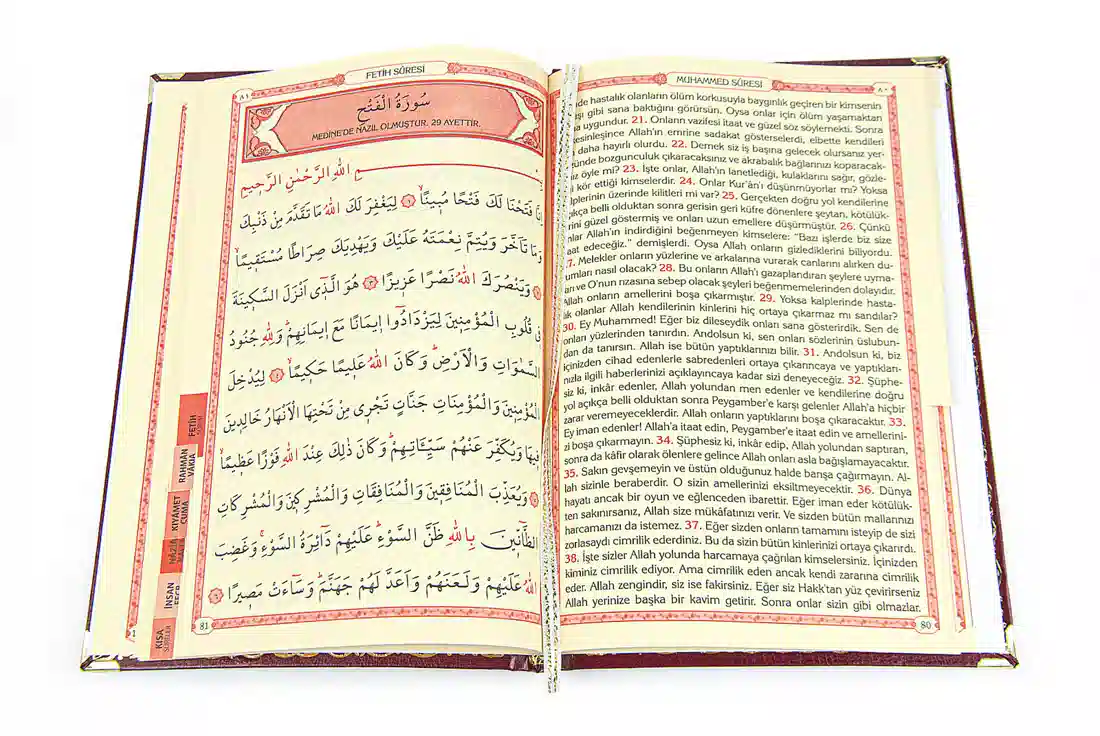 MUHAMMED SÛRESİ
٨٠
hastalık olanların ölüm korkusuyla baygınlık geçiren bir kimsenin
gibi sana baktığını görürsün. Oysa onlar için ölüm yaşamaktan
uygundur. 21. Onların vazifesi itaat ve güzel söz söylemekti. Sonra
Allah'ın emrine sadakat gösterselerdi, elbette kendileri
daha hayırlı olurdu. 22. Demek siz iş başına gelecek olursanız yer-
bozgunculuk çıkaracaksınız ve akrabalık bağlarınızı koparacak-
öyle mi? 23. İşte onlar, Allah'ın lanetlediği, kulaklarını sağır, gözle-
kör ettiği kimselerdir. 24. Onlar Kur'ân'ı düşünmüyorlar mı? Yoksa
üzerinde kilitleri mi var? 25. Gerçekten doğru yol kendilerine
belli olduktan sonra gerisin geri küfre dönenlere şeytan, kötülük-
güzel göstermiş ve onları uzun emellere düşürmüştür. 26. Çünkü
Allah'ın indirdiğini beğenmeyen kimselere: "Bazı işlerde biz size
edeceğiz." demişlerdi. Oysa Allah onların gizlediklerini biliyordu.
Melekler onların yüzlerine ve arkalarına vurarak canlarını alırken du-
nasıl olacak? 28. Bu onların Allah'ı gazaplandıran şeylere uyma-
ve O'nun rızasına sebep olacak şeyleri beğenmemelerinden dolayıdır.
Allah onların amellerini boşa çıkarmıştır. 29. Yoksa kalplerinde hasta-
lık olanlar Allah kendilerinin kinlerini hiç ortaya çıkarmaz mı sandılar?
30. Ey Muhammed! Eğer biz dileseydik onları sana gösterirdik. Sen de
onları yüzlerinden tanırdın. Andolsun ki, sen onları sözlerinin üslubun-
dan da tanırsın. Allah ise bütün yaptıklarınızı bilir. 31. Andolsun ki, biz
içinizden cihad edenlerle sabredenleri ortaya çıkarıncaya ve yaptıkları-
nızla ilgili haberlerinizi açıklayıncaya kadar sizi deneyeceğiz. 32. Şüphe-
siz ki, inkâr edenler, Allah yolundan men edenler ve kendilerine doğru
yol açıkça belli olduktan sonra Peygamber'e karşı gelenler Allah'a hiçbir
zarar veremeyeceklerdir. Allah onların yaptıklarını boşa çıkaracaktır. 33.
Ey iman edenler! Allah'a itaat edin, Peygamber'e itaat edin ve amellerini-
zi boşa çıkarmayın. 34. Şüphesiz ki, inkâr edip, Allah yolundan saptıran,
sonra da kâfir olarak ölenlere gelince Allah onları asla bağışlamayacaktır.
35. Sakın gevşemeyin ve üstün olduğunuz halde barışa çağırmayın. Al-
lah sizinle beraberdir. O sizin amellerinizi eksiltmeyecektir. 36. Dünya
hayatı ancak bir oyun ve eğlenceden ibarettir. Eğer iman eder kötülük-
ten sakınırsanız, Allah size mükâfatınızı verir. Ve sizden bütün mallarınızı
harcamanızı da istemez. 37. Eğer sizden onların tamamını isteyip de sizi
zorlasaydı cimrilik ederdiniz. Bu da sizin bütün kinlerinizi ortaya çıkarırdı.
38. İşte sizler Allah yolunda harcamaya çağrılan kimselersiniz. İçinizden
kiminiz cimrilik ediyor. Ama cimrilik eden ancak kendi zararına cimrilik
eder. Allah zengindir, siz ise fakirsiniz. Eğer siz Hakk'tan yüz çevirirseniz
Allah yerinize başka bir kavim getirir. Sonra onlar sizin gibi olmazlar.
80
FETİH SÛRESİ
٨١
سُورَةُ الْفَتْحِ
MEDİNE'DE NÂZİL OLMUŞTUR. 29 AYETTİR.
اللهِ الرَّحْمٰنِ الرَّحِيمِ
اِنَّا فَتَحْنَا لَكَ فَتْحًا مُبِينًاۙ ﴿١﴾ لِيَغْفِرَ لَكَ اللهُ مَا تَقَدَّمَ مِنْ ذَنْبِكَ
وَمَا تَاَخَّرَ وَيُتِمَّ نِعْمَتَهُ عَلَيْكَ وَيَهْدِيَكَ صِرَاطًا مُسْتَقِيمًاۙ
﴿٢﴾ وَيَنْصُرَكَ اللهُ نَصْرًا عَزِيزًا ﴿٣﴾ هُوَ الَّذِٓى اَنْزَلَ السَّكِينَةَ
فِى قُلُوبِ الْمُؤْمِنِينَ لِيَزْدَادُٓوا اِيمَانًا مَعَ اِيمَانِهِمْۜ وَلِلهِ جُنُودُ
السَّمٰوَاتِ وَالْاَرْضِۜ وَكَانَ اللهُ عَلِيمًا حَكِيمًاۙ ﴿٤﴾ لِيُدْخِلَ
الْمُؤْمِنِينَ وَالْمُؤْمِنَاتِ جَنَّاتٍ تَجْرِى مِنْ تَحْتِهَا الْاَنْهَارُ خَالِدِينَ
فِيهَا وَيُكَفِّرَ عَنْهُمْ سَيِّـَٔاتِهِمْۜ وَكَانَ ذٰلِكَ عِنْدَ اللهِ فَوْزًا عَظِيمًاۙ
﴿٥﴾ وَيُعَذِّبَ الْمُنَافِقِينَ وَالْمُنَافِقَاتِ وَالْمُشْرِكِينَ وَالْمُشْرِكَاتِ
الظَّٓانِّينَ بِاللهِ ظَنَّ السَّوْءِۜ عَلَيْهِمْ دَٓائِرَةُ السَّوْءِۚ وَغَضِبَ
اللهُ عَلَيْهِمْ وَلَعَنَهُمْ وَاَعَدَّ لَهُمْ جَهَنَّمَۜ وَسَٓاءَتْ مَصِيرًا ﴿٦﴾
81
FETİH
RAHMÂN
VÂKIA
KIYÂMET
CUMA
İNSAN
KISA
SÛRELER
1